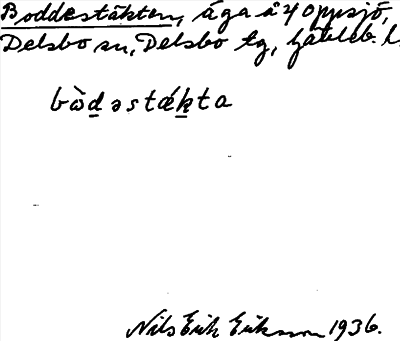 Boddestäkten, äga å 4 Oppsjö,
Delsbo sn, Delsbo tg, Gävleb. l.
bòdəstǽkta
Nils Erik Eriksson 1936.